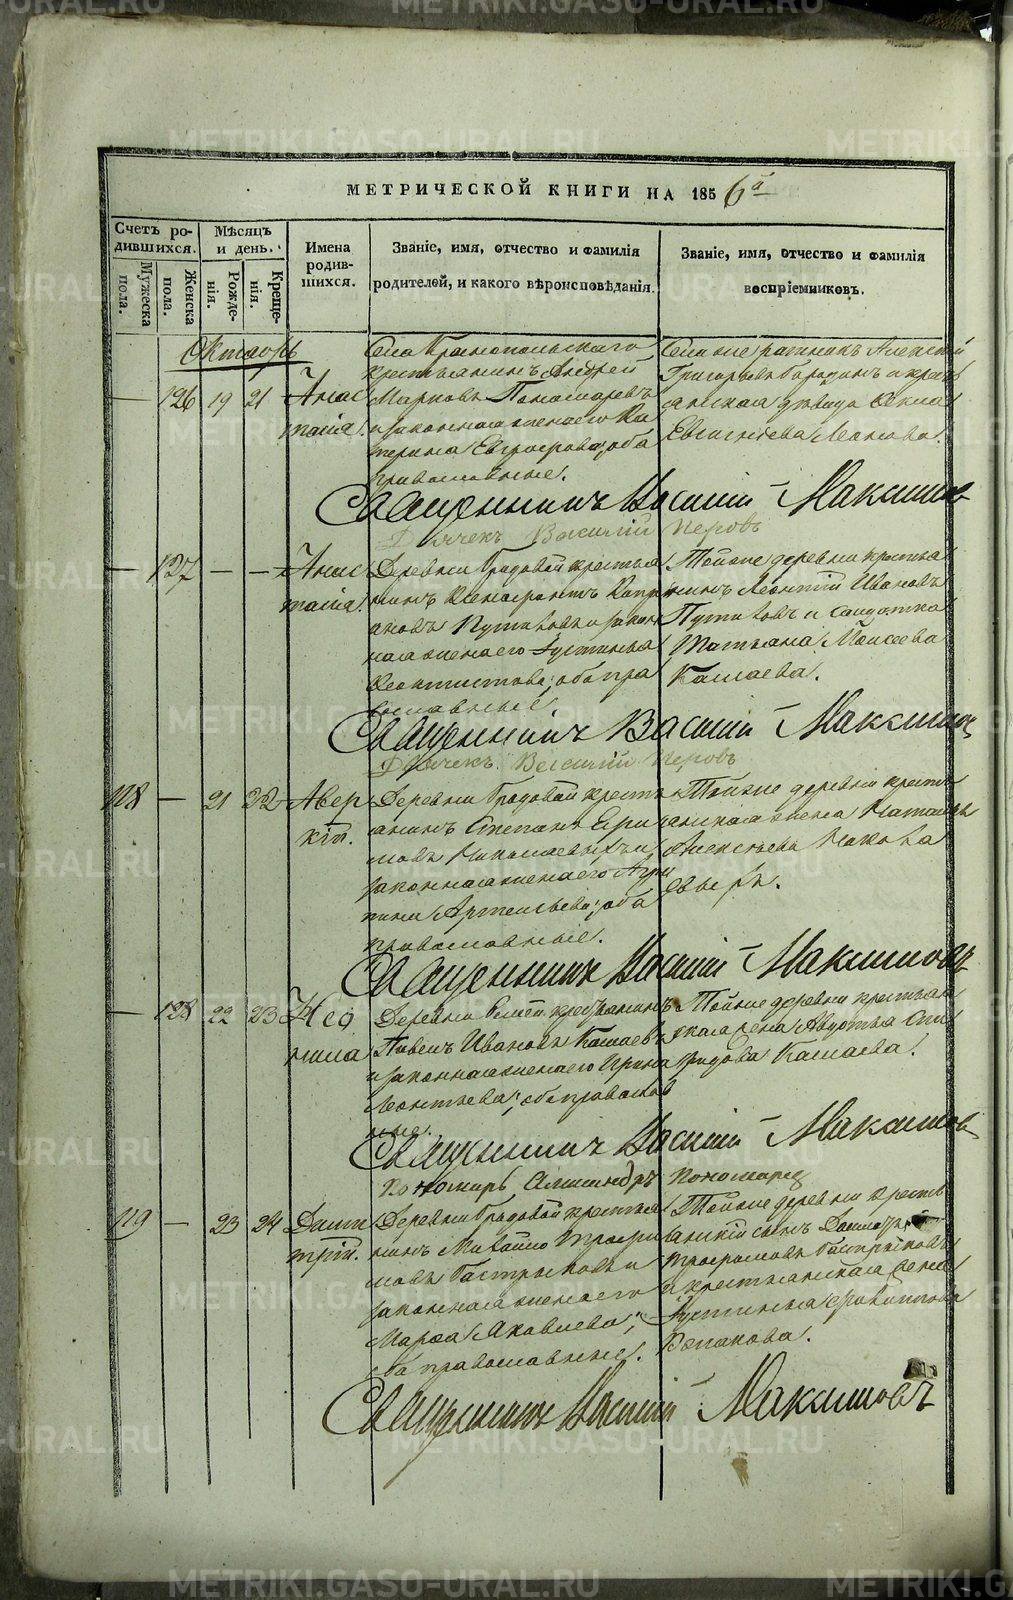 МЕТРИЧЕСКОЙ КНИГИ НА 1856й
Счетъ родившихся.
Мужеска пола.
Женска пола.
Мѣсяцъ и день.
Рожденія.
Крещенія.
Имена родившихся.
Званіе, имя, отчество и фамилія
родителей, и какого вѣроисповѣданія.
Званіе, имя, отчество и фамилія
воспріемниковъ.
Октябрь
— 126 19 21
Анас
тасія.
Села
крестьянинъ Андрей
Марковъ Пономаревъ
и законная жена его Ка
терина оба
православные.
Григорьевъ Бородинъ и крест
янская дѣвица
Евгеніева
Священникъ Василій Максимов
Дьячекъ Василій Перовъ
— 127 — —
Анас
тасія.
Деревни Бродовой крестья
нинъ Ксенофонтъ Кипри
ановъ Путиловъ и закон
ная жена его Устинья
Феоктистова; оба пра
вославные.
Тойже деревни крестья
нинъ Леонтій Ивановъ
Путиловъ и солдатка
Татьяна Моисеева
Кашаева.
Священникъ Василій Максимов
Дьячекъ Василій Перовъ
118 — 21 22
Авер
кій.
Деревни Бродовой кресть
янинъ Степанъ Ефи
мовъ и
законная жена его Агри
пина Артемьева; оба
православные.
Тойже деревни кресть
янская жена Наталья
Алексѣева
Священникъ Василій Максимовъ
— 128 22 23
Нео
нила
Деревни крестьянинъ
Павелъ Ивановъ Кашаевъ
и законная жена его Ирина
Леонтьева; оба православ
ные.
Тойже деревни крестьян
ская жена Авдотья Спи
ридова Кашаева.
Священникъ Василій Максимов
Пономарь Александръ Пономарев
119 — 23 24
Дмит
трій.
Деревни Бродовой крестья
нинъ Михайло Трофи
мовъ и
законная жена его
Марфа Яковлева;
оба православные.
Тойже деревни кресть
янскій сынъ
Трофимовъ
и крестьянская жена
Устинья
Священникъ Василій Максимовъ
METRIKI.GASO-URAL.RU